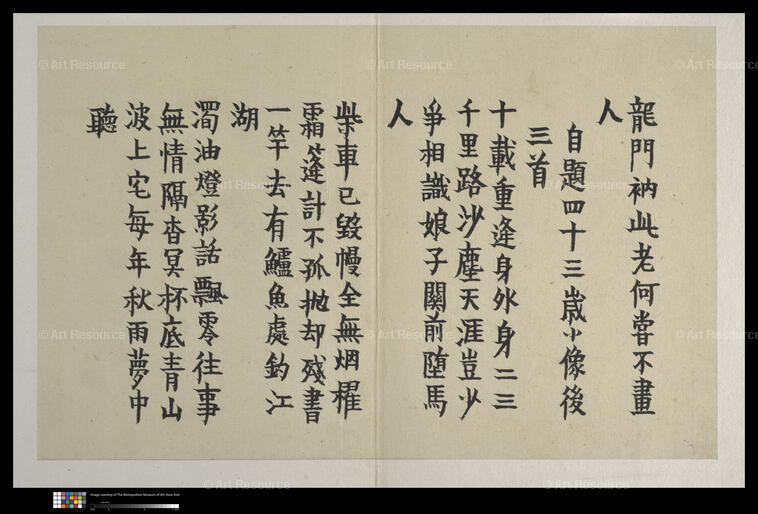 龍門衲此老何嘗不畫
人
自題四十三歲小像後
三首
十載重逢身外身二三
千里路沙塵天涯豈少
爭相識娘子關前墮馬
人
柴車已毀幔全無烟櫂
霜篷計不孤拋却殘書
一竿去有鱸魚處釣江
湖
濁油燈影話飄零往事
無情隔杳冥杯底青山
波上宅每年秋雨夢中
聽
© Art Resource
© Art Resource
© Art Resource
© Art Resource
© Art Resource
© Art Resource
© Art Resource
© Art Resource
© Art Resource
© Art Resource
© Art Resource
Image courtesy of The Metropolitan Museum of Art, New York